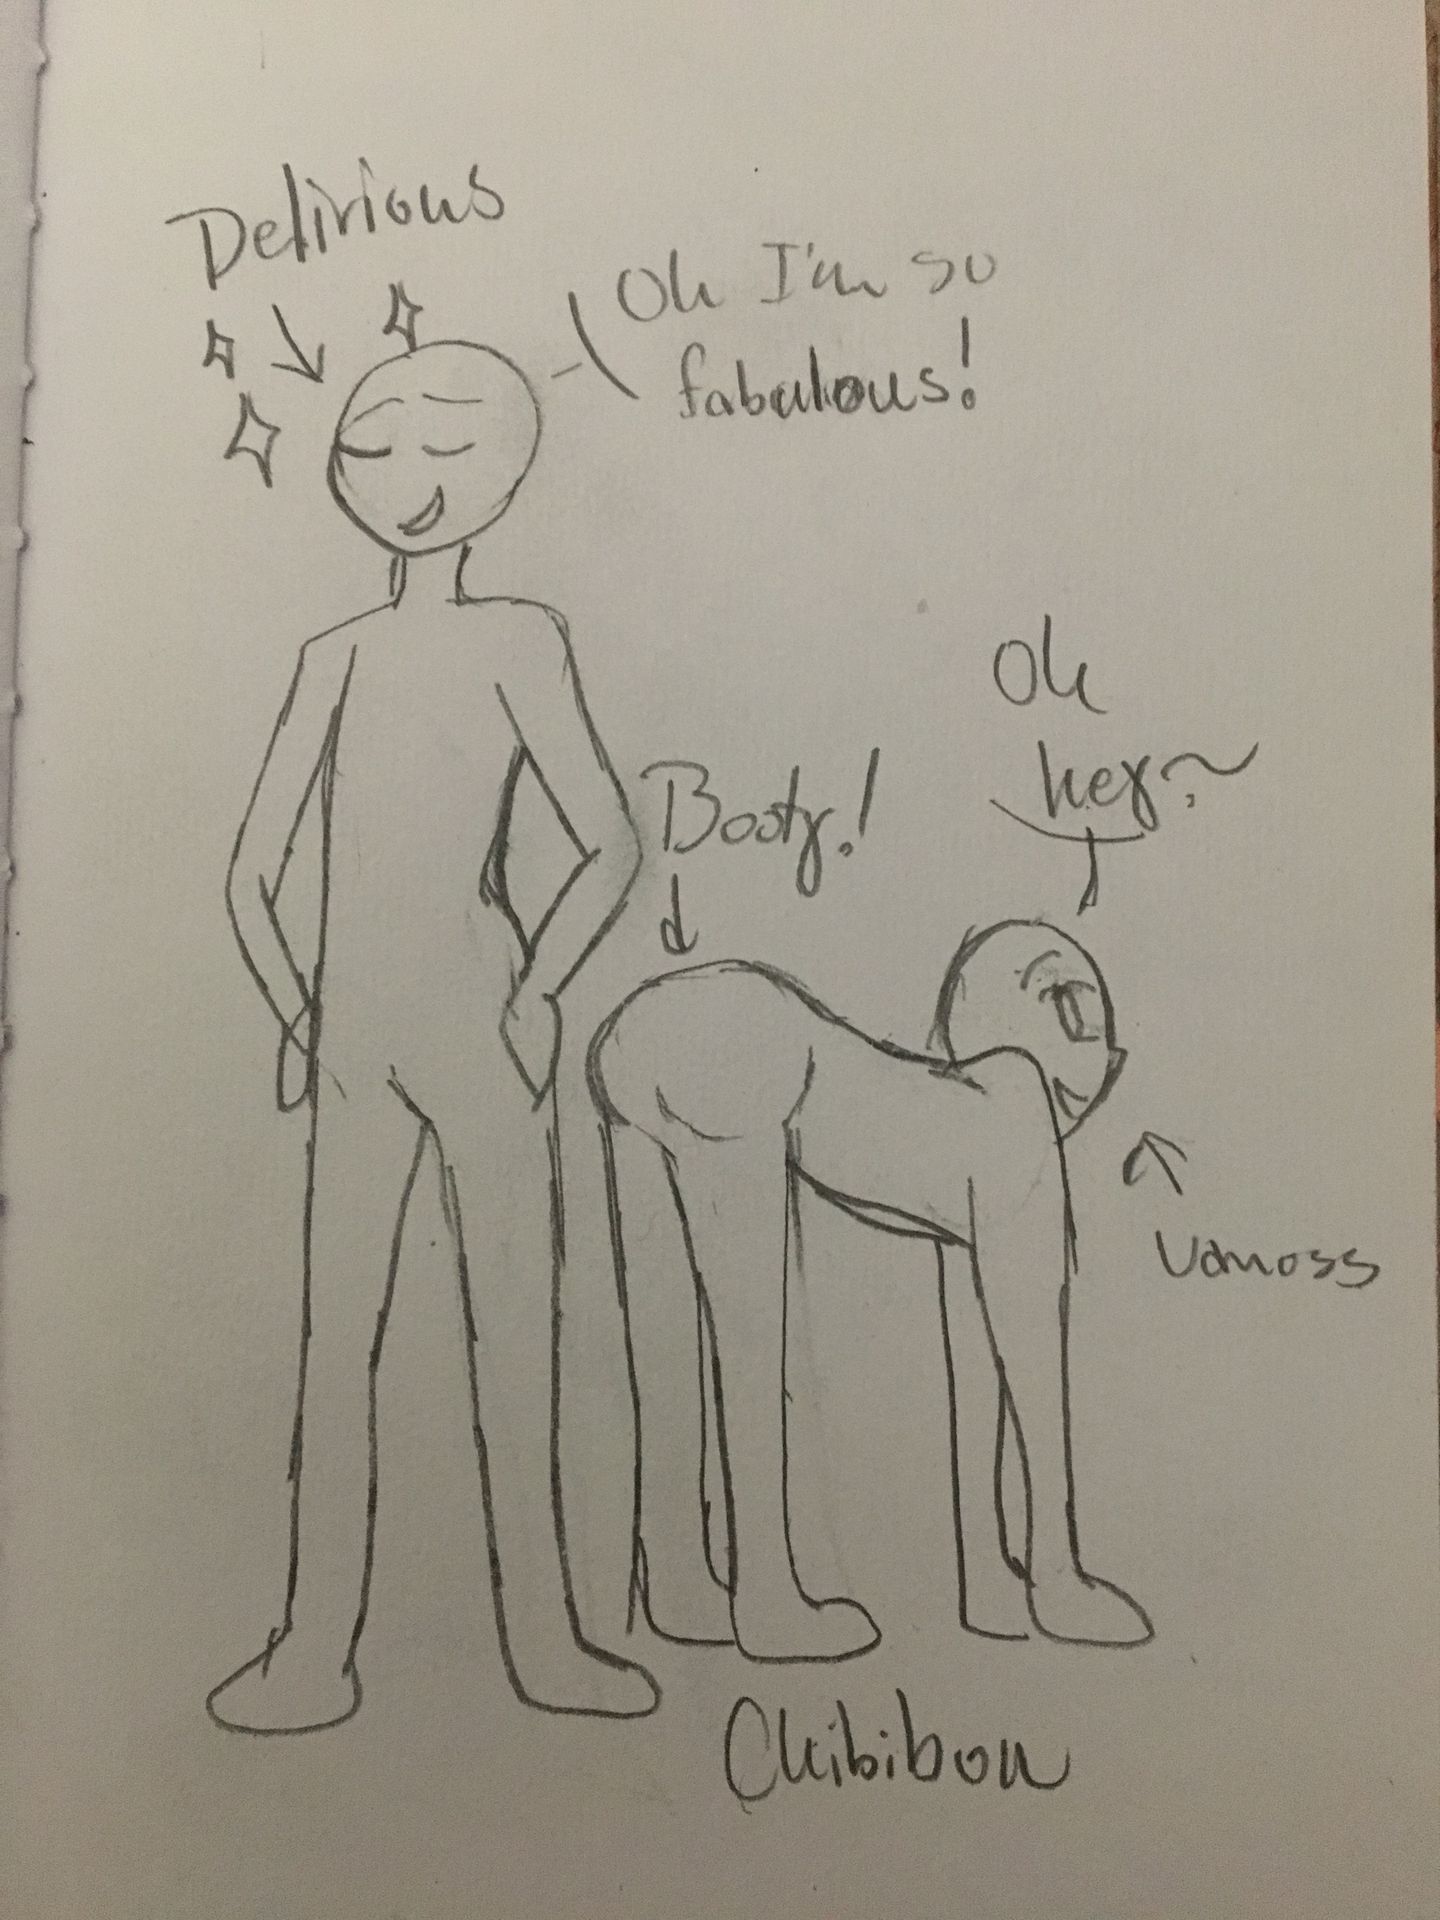 Delirious
Oh I'm so
fabulous!
Oh
hey~
Booty!
Vanoss
Chibibon